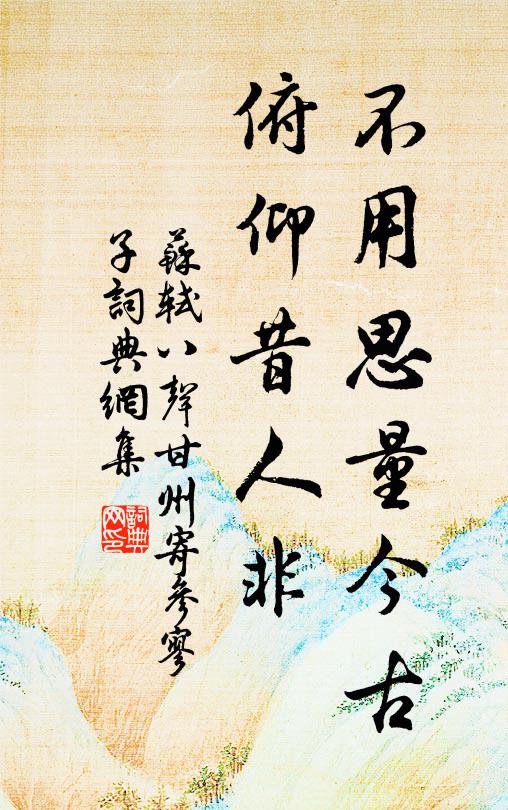 不用思量今古
俯仰昔人非
蘇軾八聲甘州寄參寥
子詞典網集
詞典
网印